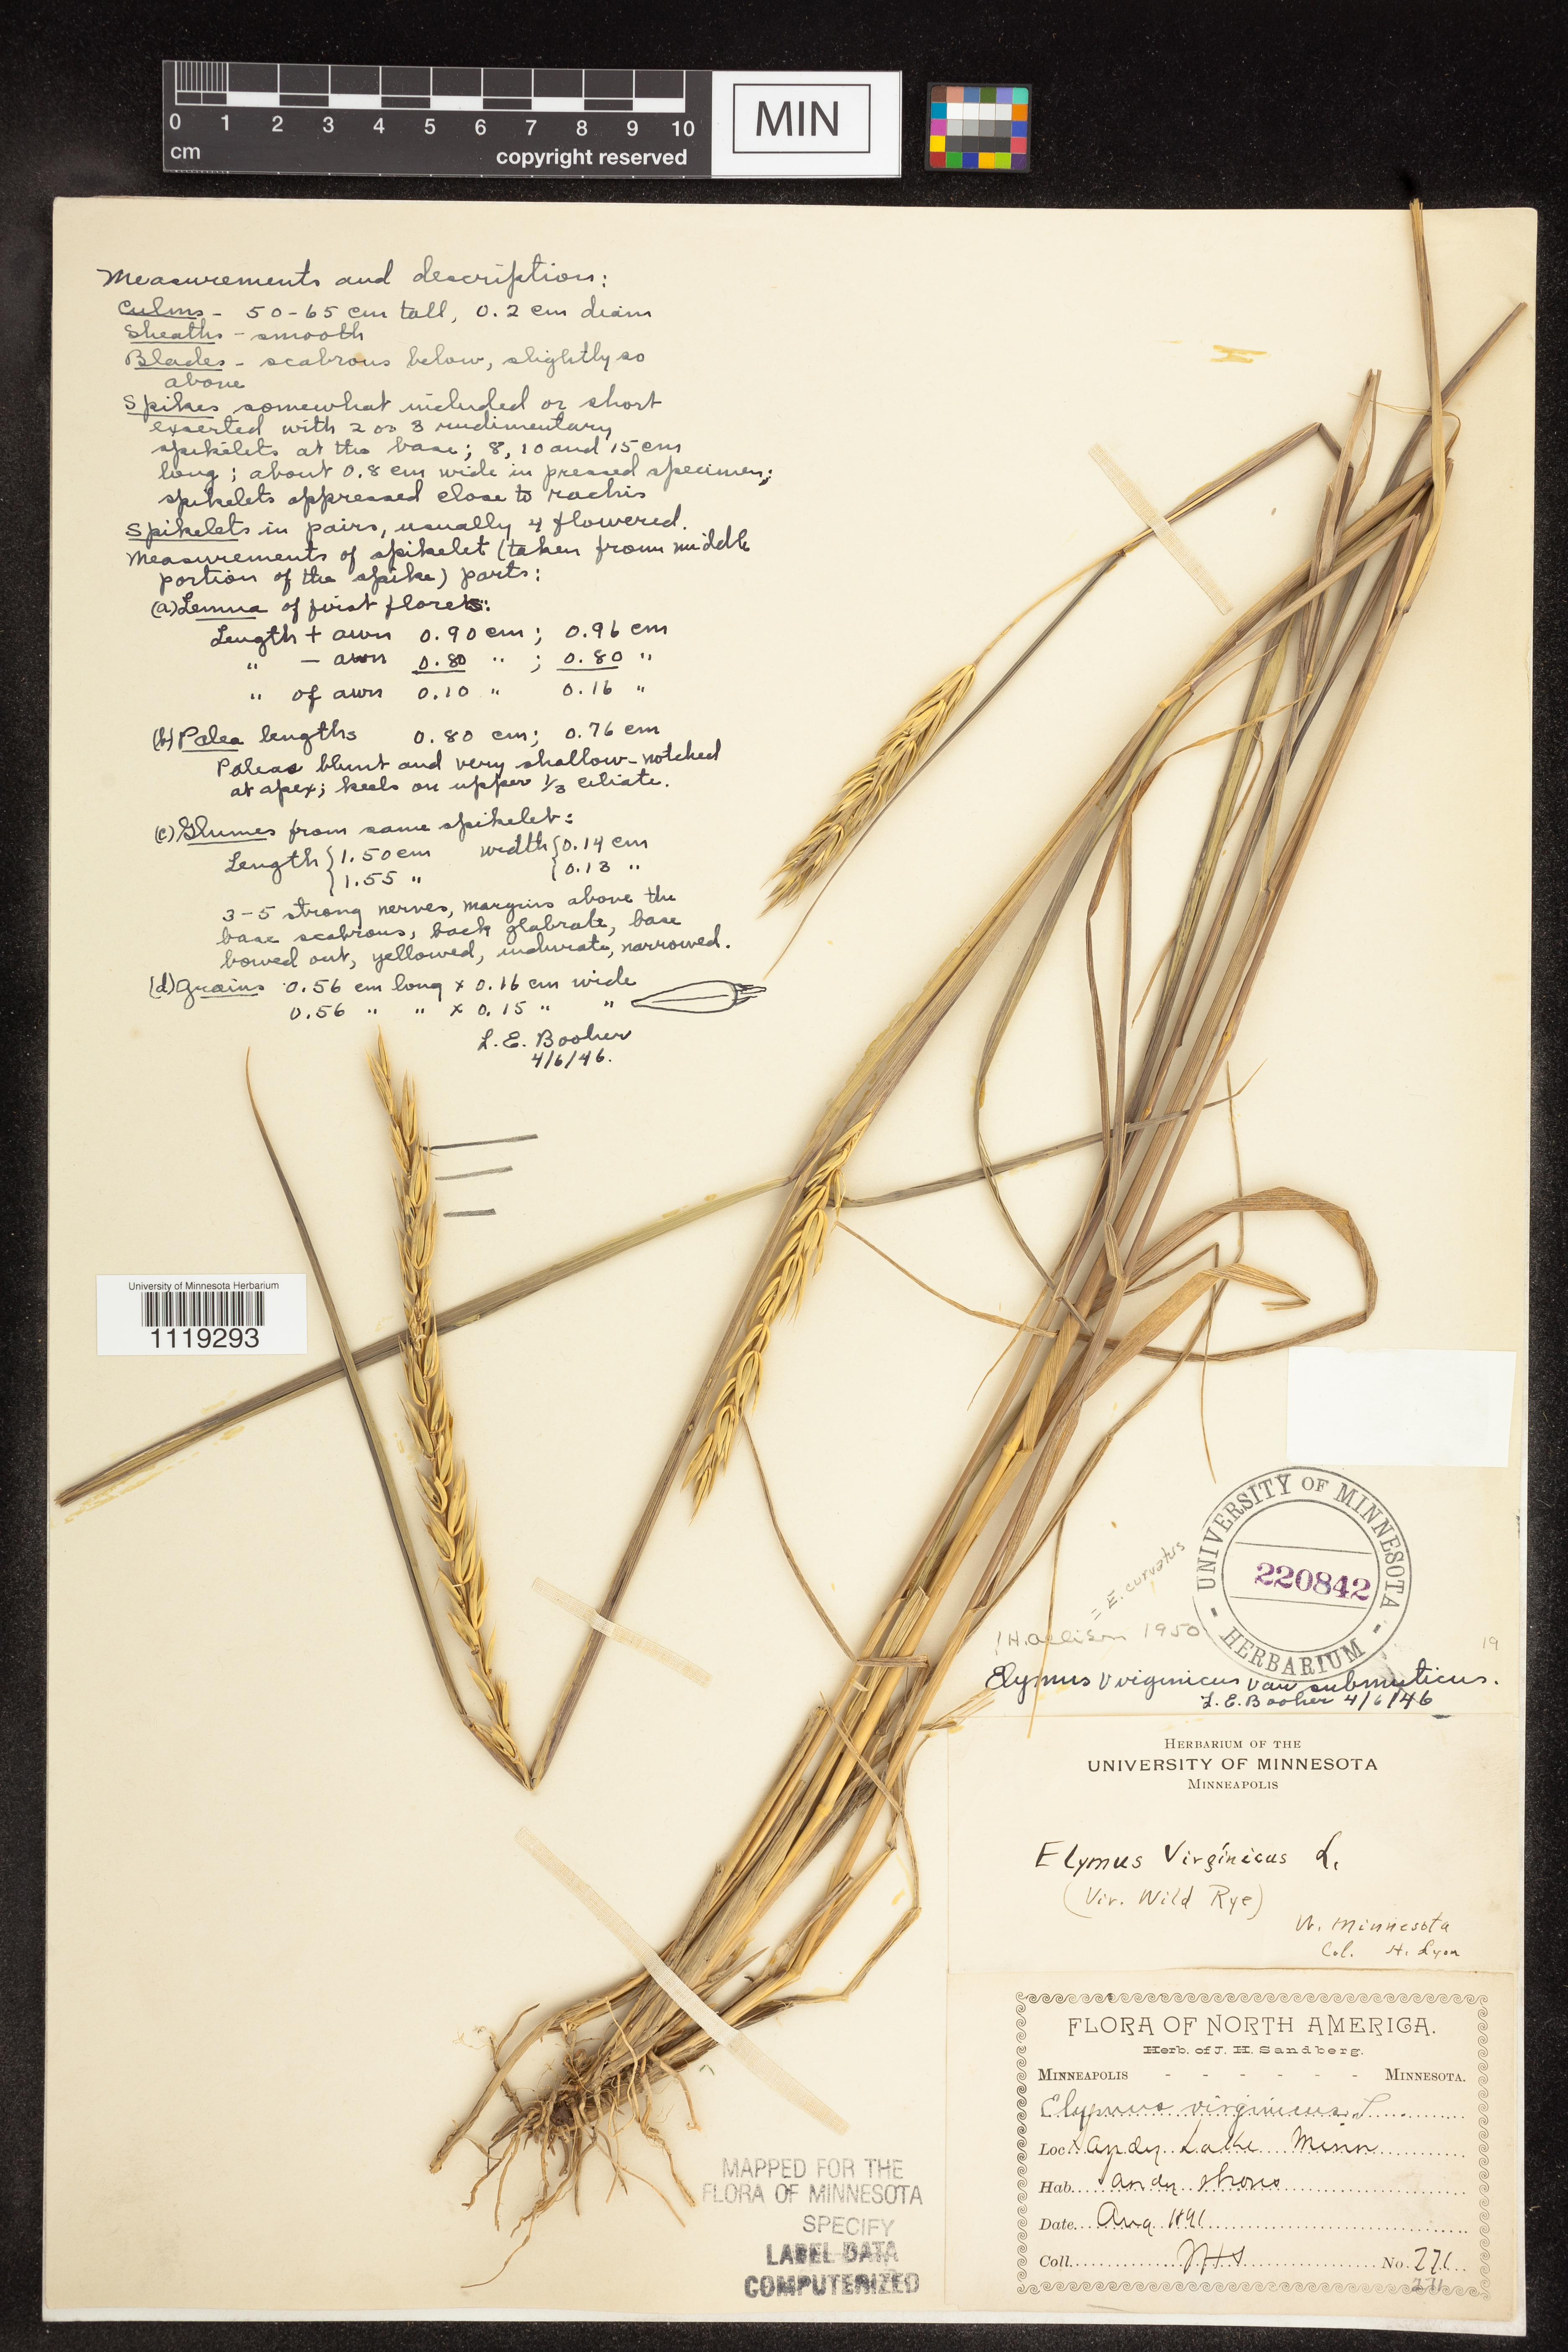 0 1 2 3 4 5 6 7 8 9 10
cm
copyright reserved
MIN
Measurements and description:
Culms - 50-65 cm tall, 0.2 cm diam
Sheaths - smooth
Blades - scabrous below, slightly so
above
Spikes somewhat included or short
exserted with 2 or 3 rudimentary
spikelets at the base; 8, 10 and 15 cm
long; about 0.8 cm wide in pressed specimen;
spikelets appressed close to rachis
Spikelets in pairs, usually 4 flowered.
Measurements of spikelet (taken from middle
portion of the spike) parts:
(a) Lemma of first florets:
Length + awn 0.90 cm; 0.96 cm
" - awn 0.80 " ; 0.80 "
" of awn 0.10 " 0.16 "
(b) Palea lengths 0.80 cm; 0.76 cm
Paleas blunt and very shallow-notched
at apex; keels on upper 1/3 ciliate.
(c) Glumes from same spikelet:
Length { 1.50 cm width { 0.14 cm
{ 1.55 " { 0.13 "
3-5 strong nerves, margins above the
base scabrous, back glabrate, base
bowed out, yellowed, indurate, narrowed.
(d) Grains 0.56 cm long x 0.16 cm wide
0.56 " " x 0.15 " "
L. E. Booher
4/6/46.
University of Minnesota Herbarium
1119293
UNIVERSITY OF MINNESOTA
220842
- HERBARIUM -
= E. curvatus
! H. Allison 1950
19
Elymus virginicus var submuticus.
L. E. Booher 4/6/46
HERBARIUM OF THE
UNIVERSITY OF MINNESOTA
MINNEAPOLIS
Elymus Virginicus L.
(Vir. Wild Rye)
W. Minnesota
Col. H. Lyon
FLORA OF NORTH AMERICA.
Herb. of J. H. Sandberg.
MINNEAPOLIS - - - - - - MINNESOTA.
Elymus virginicus L.
Loc Sandy Lake Minn
Hab. Sandy shores
Date. Aug 1891
Coll. JHS No. 271
271
MAPPED FOR THE
FLORA OF MINNESOTA
SPECIFY
LABEL DATA
COMPUTERIZED